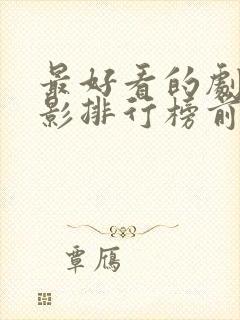 最好看的劇
影排行榜前
覃雁